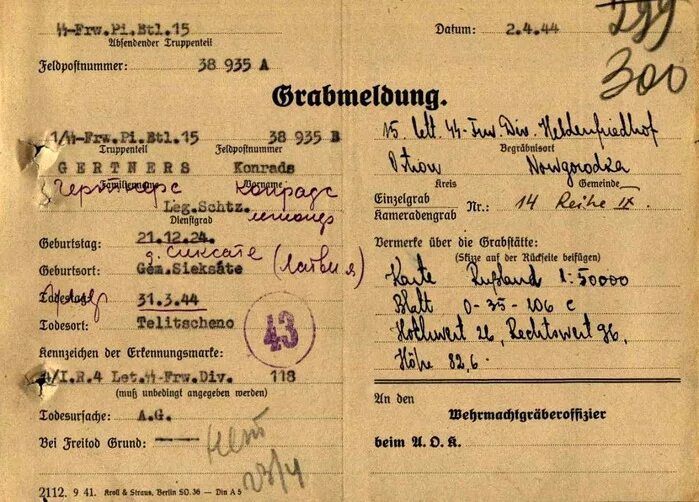 ϟϟ-Frw.Pi.Btl.15
Absendender Truppenteil
Feldpostnummer: 38 935 A
Datum: 2.4.44
299
300
Grabmeldung.
1/ϟϟ-Frw.Pi.Btl.15 38 935 B
Truppenteil Feldpostnummer
GERTNERS Konrads
Familienname Vorname
Гертнерс Конрадс
Leg.Schtz.
Dienstgrad
Geburtstag: 21.12.24.
д. Сиксате (Латвия)
Geburtsort: Gem.Sieksāte
Todestag: 31.3.44
Todesort: Telitscheno
43
Kennzeichen der Erkennungsmarke:
/I.R.4 Let.ϟϟ-Frw.Div. 118
(muß unbedingt angegeben werden)
Todesursache: A.G.
Bei Freitod Grund: ——
23/4
2112. 9 41. Kroll & Straus, Berlin SO. 36 — Din A 5
15. lett. ϟϟ-Frw. Div. Heldenfriedhof
Begräbnisort
Ostrow Nowgorodka
Kreis Gemeinde
Einzelgrab
Kameradengrab Nr.: 14 Reihe IX.
Vermerke über die Grabstätte:
(Skizze auf der Rückseite beifügen)
Karte Rußland 1:50000
Blatt O-35-106 C
Hochwert 26, Rechtswert 96,
Höhe 82,6.
An den
Wehrmachtgräberoffizier
beim A.O.K.